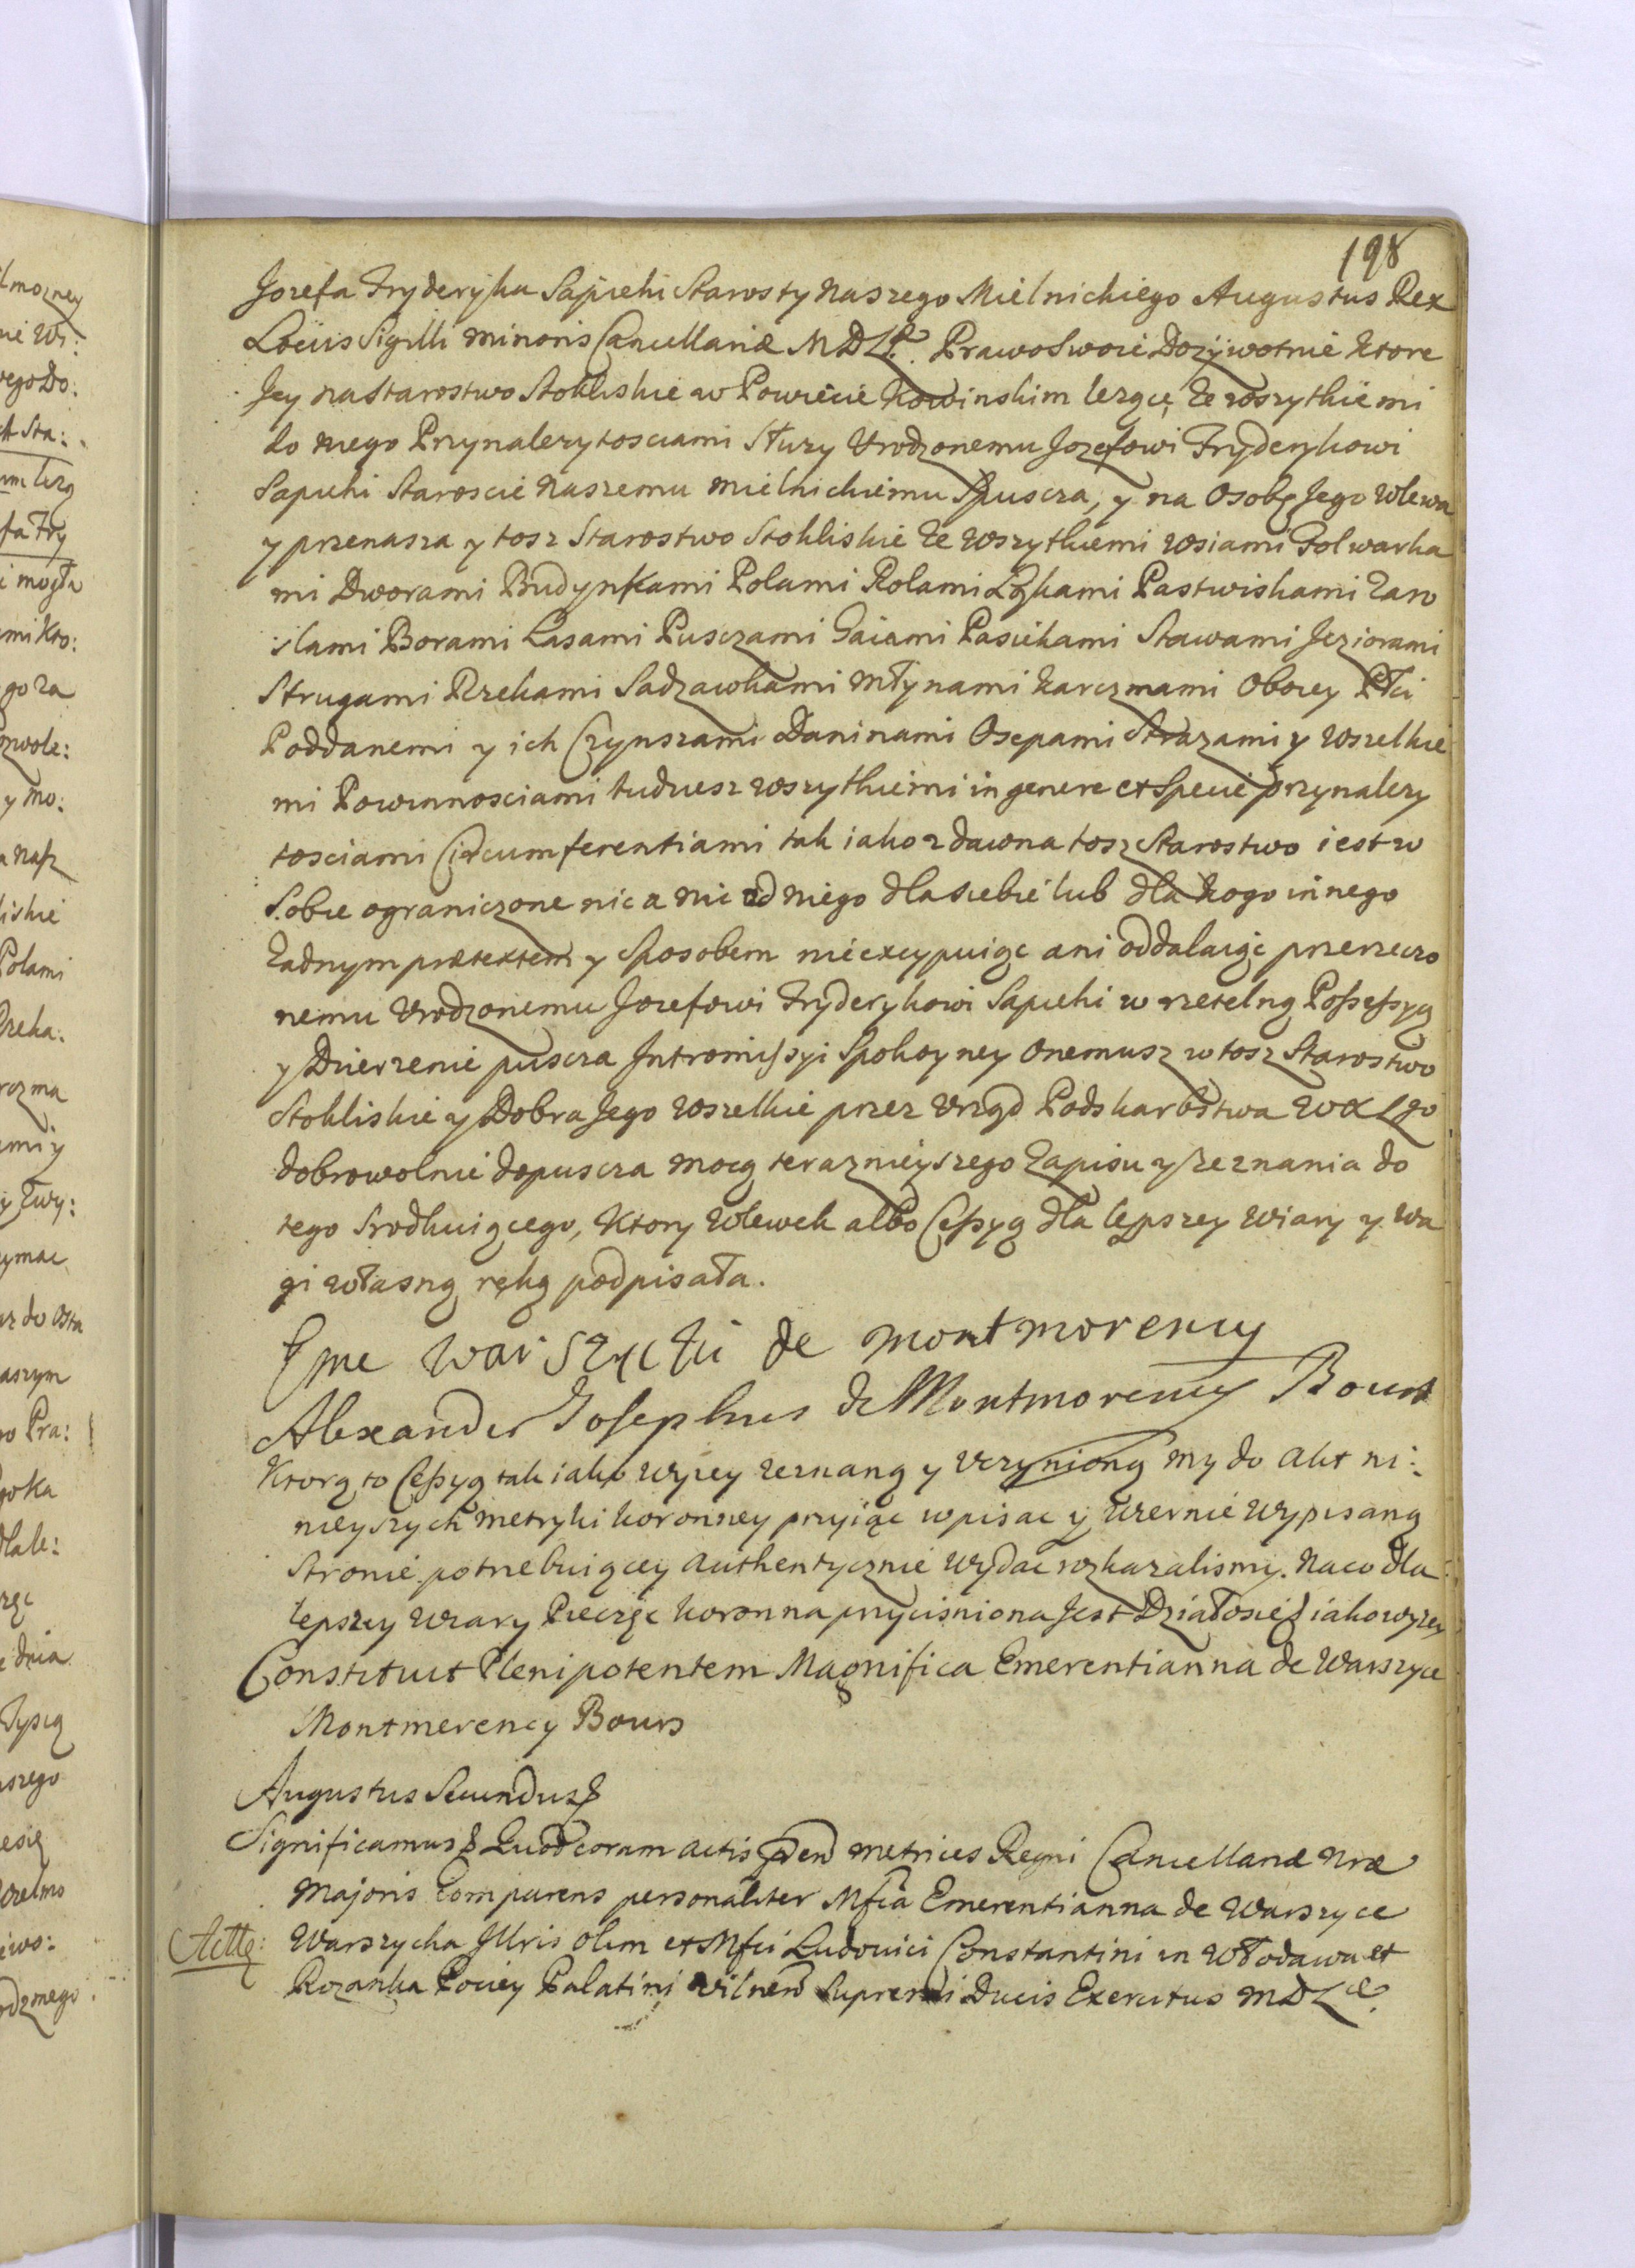 198
Jozefa Fryderyka Sapiehi Starosty Naszego Mielnickiego Augustus Rex
Locus Sigilli minoris Cancellariæ M D L. Prawo Swoie Dozywotnie ktore
Jey na Starostwo Stokliskie w Powiecie Kowinskim lezące ze wszytkiemi
do niego Przynalezytosciami słuzy Urodzonemu Jozefowi Fryderykowi
Sapiehi Staroscie Naszemu Mielnickiemu Spuscza, y na Osobę Jego wlewa
y przenasza y tosz Starostwo Stokliskie ze wszytkiemi wsiami Folwarka
mi Dworami Budynkami Polami Rolami Łąkami Pastwiskami Zaro
slami Borami Lasami Pusczami Gaiami Pasiekami Stawami Jeziorami
Strugami Rzekami Sadzawkami Młynami Karczmami Oboiey Płci
Poddanemi y ich Czynszami Daninami Osepami Strazami y wszelkie
mi Powinnosciami tudziesz wszytkiemi in genere et Specie przynalezy
tosciami Circumferentiami tak iako z dawna tosz Starostwo iest w
Sobie ograniczone nic a nic od niego dla siebie lub dla kogo innego
Zadnym prætextem y Sposobem nie excypuiąc ani oddalaiąc przerzeczo
nemu Urodzonemu Jozefowi Fryderykowi Sapiehi w rzetelną Possessyą
y Dzierzenie puscza Intromissyi Spokoyney Onemusz w tosz Starostwo
Stokliskie y Dobra Jego wszelkie przez Urząd Podskarbstwa W X Lgo
dobrowolnie dopuscza mocą teraznieyszego Zapisu y zeznania do
tego Srodkuiącego, Ktory Wlewek albo Cessyą dla lepszey wiary y wa
gi własną ręką podpisała.
de montmorency
Alexander Josephus de Montmorency Bours
Ktorą to Cessyą tak iako wyzey zeznaną y uczynioną my do Akt ni:
nieyszych metryki koronney przyiąc wpisac y wiernie wypisaną
Stronie potrzebuiącey authentycznie wydac rozkazalismy. Na co dla
lepszey wiary Pieczęc koronna przycisniona Jest Działo się iako wyzey
Constituit Plenipotentem Magnifica Emerentianna de Warszyce
Montmerency Bours
Augustus Secundus
Significamus Quod coram actis pñ metrices Regni Cancellariæ nræ
Majoris Comparens personaliter Mfca Emerentianna de Warszyce
Warszycka Illris olim et Mfci Ludovici Constantini in Włodawa et
Rozanka Pociey Palatini Vilneñ Supremi Ducis Exercitus M D L